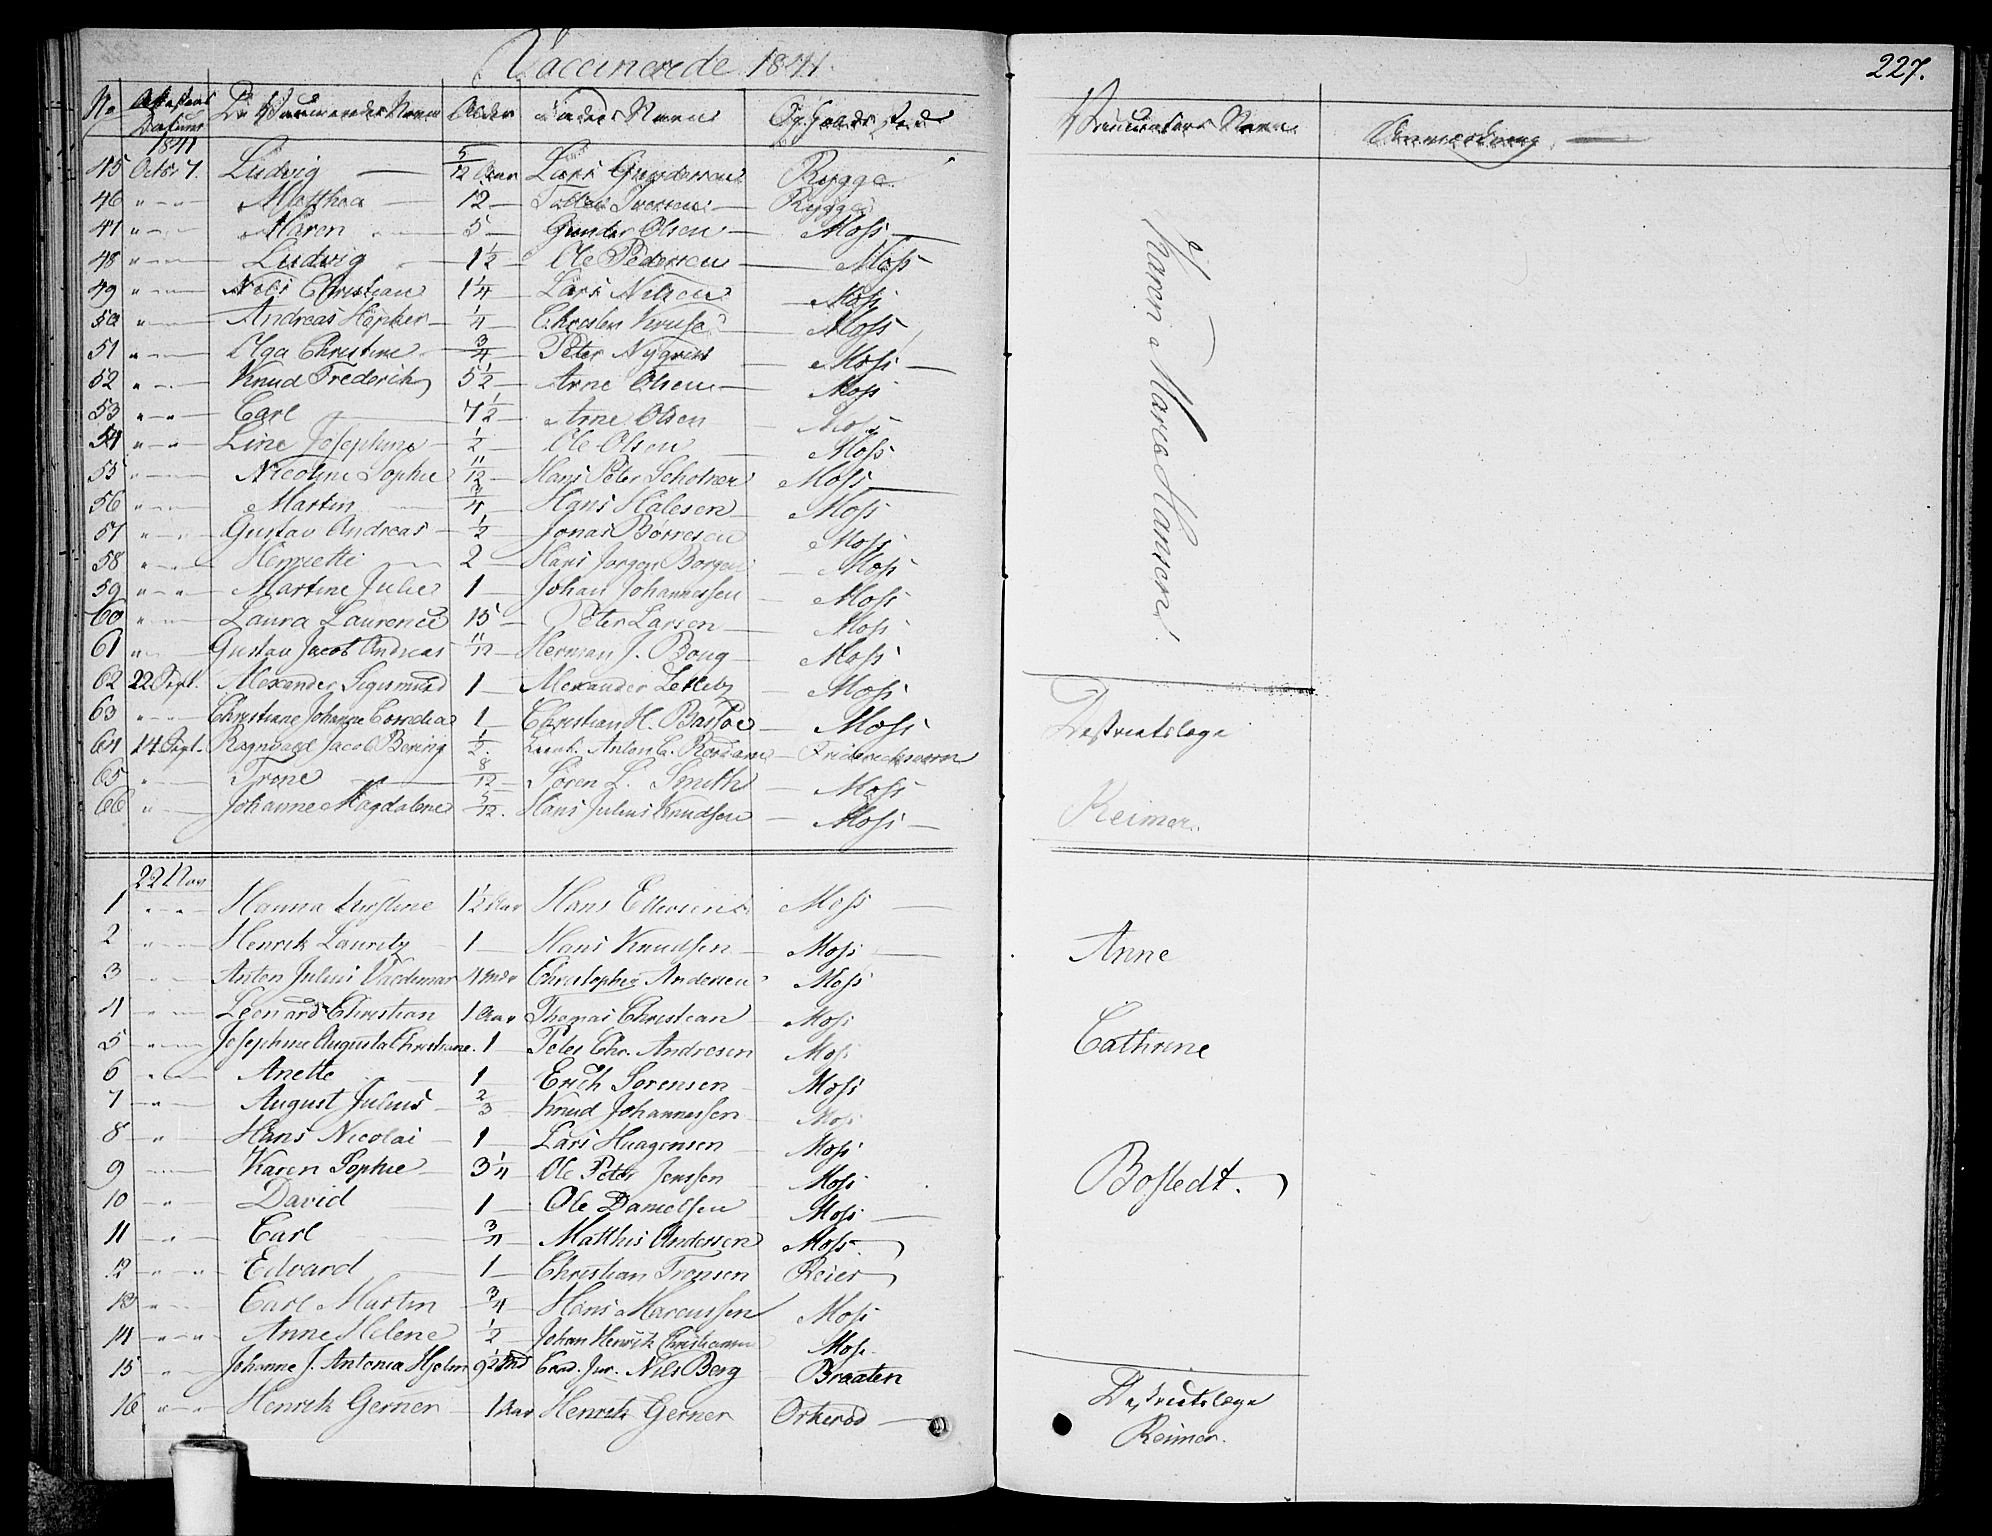 Vaccinerede 1841.
227.
No Attestens Datum De Vaccineredes Navn Alder Faders Navn Opholds Sted Vaccinators Navn Anmærkning
1841
45 Octb. 7. Ludvig 5/12 Aar Lars Gundersen Rygge
46 " Matthea 12 Iversen Rygge
47 " Maren 5 Gunder Olsen Moss
48 " Ludvig 1 1/2 Ole Pedersen Moss
49 " Nils Christian 1 1/4 Lars Nilsen Moss
50 " Andreas Høpker 1/4 Christen Kruse Moss
51 " Olga Christine 3/4 Peter Nygren Moss
52 " Knud Frederik 5 1/2 Arne Olsen Moss
53 " Carl 7 1/2 Arne Olsen Moss
54 " Line Josephine 1/2 Ole Olsen Moss
55 " Nicoline Sophie 11/12 Hans Peter Moss
56 " Martin 3/4 Hans Halesen Moss
57 " Gustav Andreas 1/2 Jonas Børresen Moss
58 " Henriette 2 Hans Jørgen Borgen Moss
59 " Martine Julie 1 Johan Johannessen Moss
60 " Laura Laurence 15 Peter Larsen Moss
61 " Gustav Jacob Andreas 11/12 Herman J. Boug Moss
Karen Marie Hansen
62 22 Sept. Alexander Sigismund 1 Alexander Moss
63 " Christiane Johanne Cornelia 1 Christian H. Basse Moss
64 14 Sept. Ragnvald Jacob Bering 1/2 Anton C. Rørdam Fridericksværn
65 " Trone 8/12 Søren L. Smith Moss
66 " Johanne Magdalene 5/12 Hans Julius Knudsen Moss
Destrictslæge
Reimer.
22 Nov
1 " Hanna Kirstine 1 1/2 Aar Hans Ellersen Moss
2 " Henrik Lauritz 1 Hans Knudsen Moss
3 " Anton Julius Valdemar 4 Mdr Christopher Andersen Moss
4 " Leonard Christian 1 Aar Thomas Christian Moss
5 " Josephine Augusta Christiane. 1 Peter Chr. Andresen Moss
6 " Anette 1 Erich Sørensen Moss
7 " August Julius 2/3 Knud Johannessen Moss
8 " Hans Nicolai 1 Lars Haagensen Moss
9 " Karen Sophie 3 1/4 Ole Peter Jenssen Moss
10 " David 1 Ole Danielsen Moss
11 " Carl 3/4 Matthis Andersen Moss
12 " Edvard 1 Christian Tronsen Reier
13 " Carl Martin 3/4 Hans Marcussen Moss
14 " Anne Helene 1/2 Johan Henrik Christiansen Moss
Anne
Cathrine
Bostedt.
15 " Johanne J. Antonia Hjelm 9 1/2 Md Cand. Jur. Nils Berg Braaten
16 " Henrik Gerner 1 Aar Henrik Gerner Orkerød
Destrictslæge
Reimer.